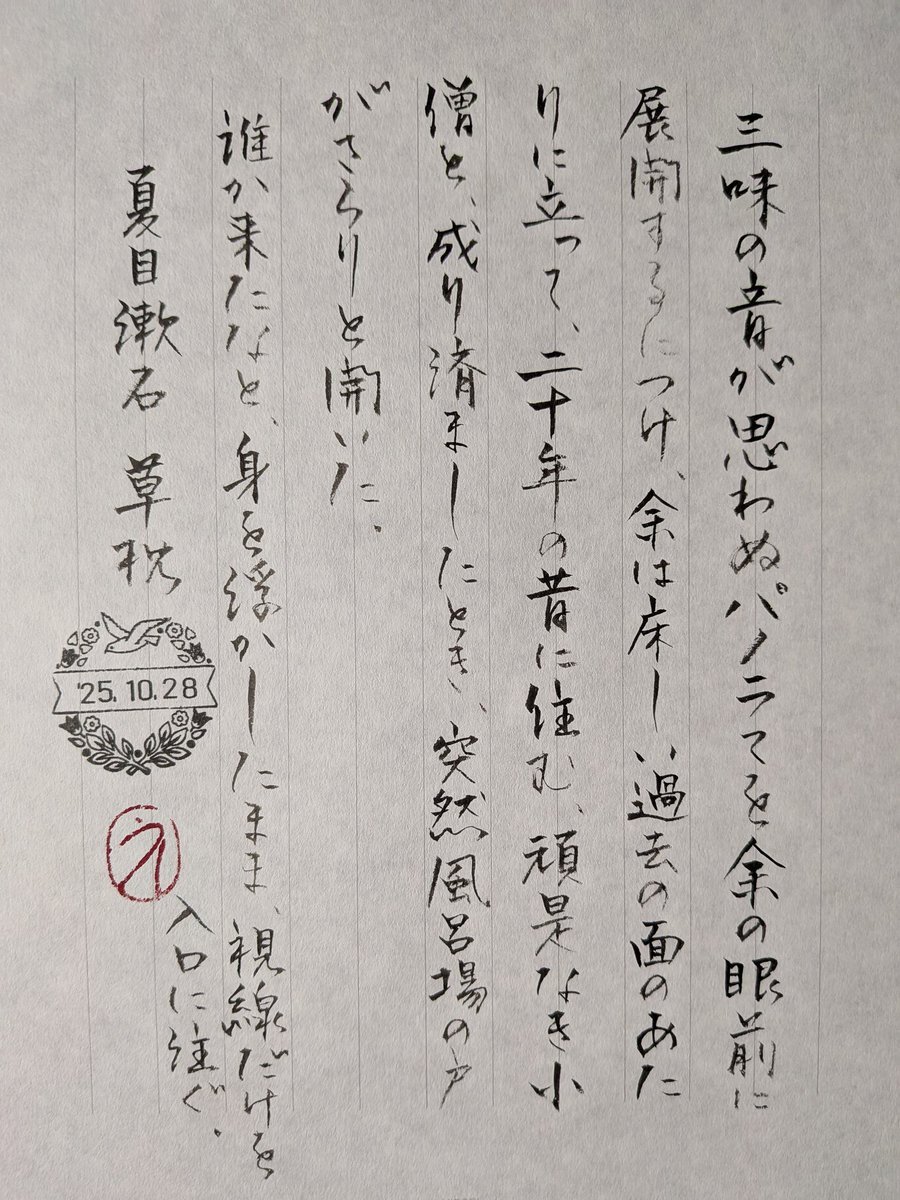 三味の音が思わぬパノラマを余の眼前に
展開するにつけ、余は床しい過去の面のあた
りに立って、二十年の昔に住む、頑是なき小
僧と、成り済ましたとき、突然風呂場の戸
がさらりと開いた。
誰か来たなと、身を浮かしたまま、視線だけを
入口に注ぐ。
夏目漱石 草枕
'25.10.28